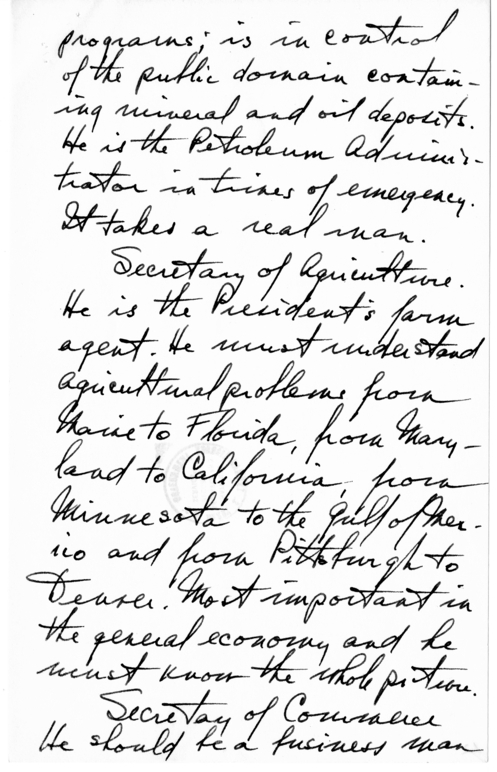 programs; is in control
of the public domain contain-
ing mineral and oil deposits.
He is the Petroleum Adminis-
trator in times of emergency.
It takes a real man.
Secretary of Agriculture.
He is the President's farm
agent. He must understand
agricultural problems from
Maine to Florida, from Mary-
land to California, from
Minnesota to the Gulf of Mex-
ico and from Pittsburgh to
Denver. Most important in
the general economy and he
must know the whole picture.
Secretay of Commerce
He should be a business man